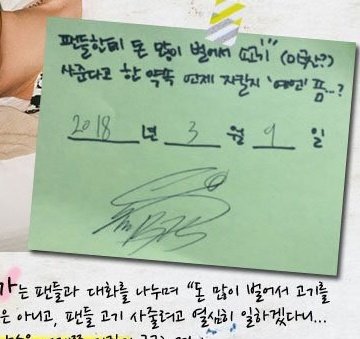 팬들한테 돈 많이 벌어서 소고기 (미국산?)
사준다고 한 약속 언제 지킬지 '예언' 쯤...?
2018 년 3 월 9 일
가는 팬들과 대화를 나누며 "돈 많이 벌어서 고기를
은 아니고, 팬들 고기 사줄려고 열심히 일하겠다니...